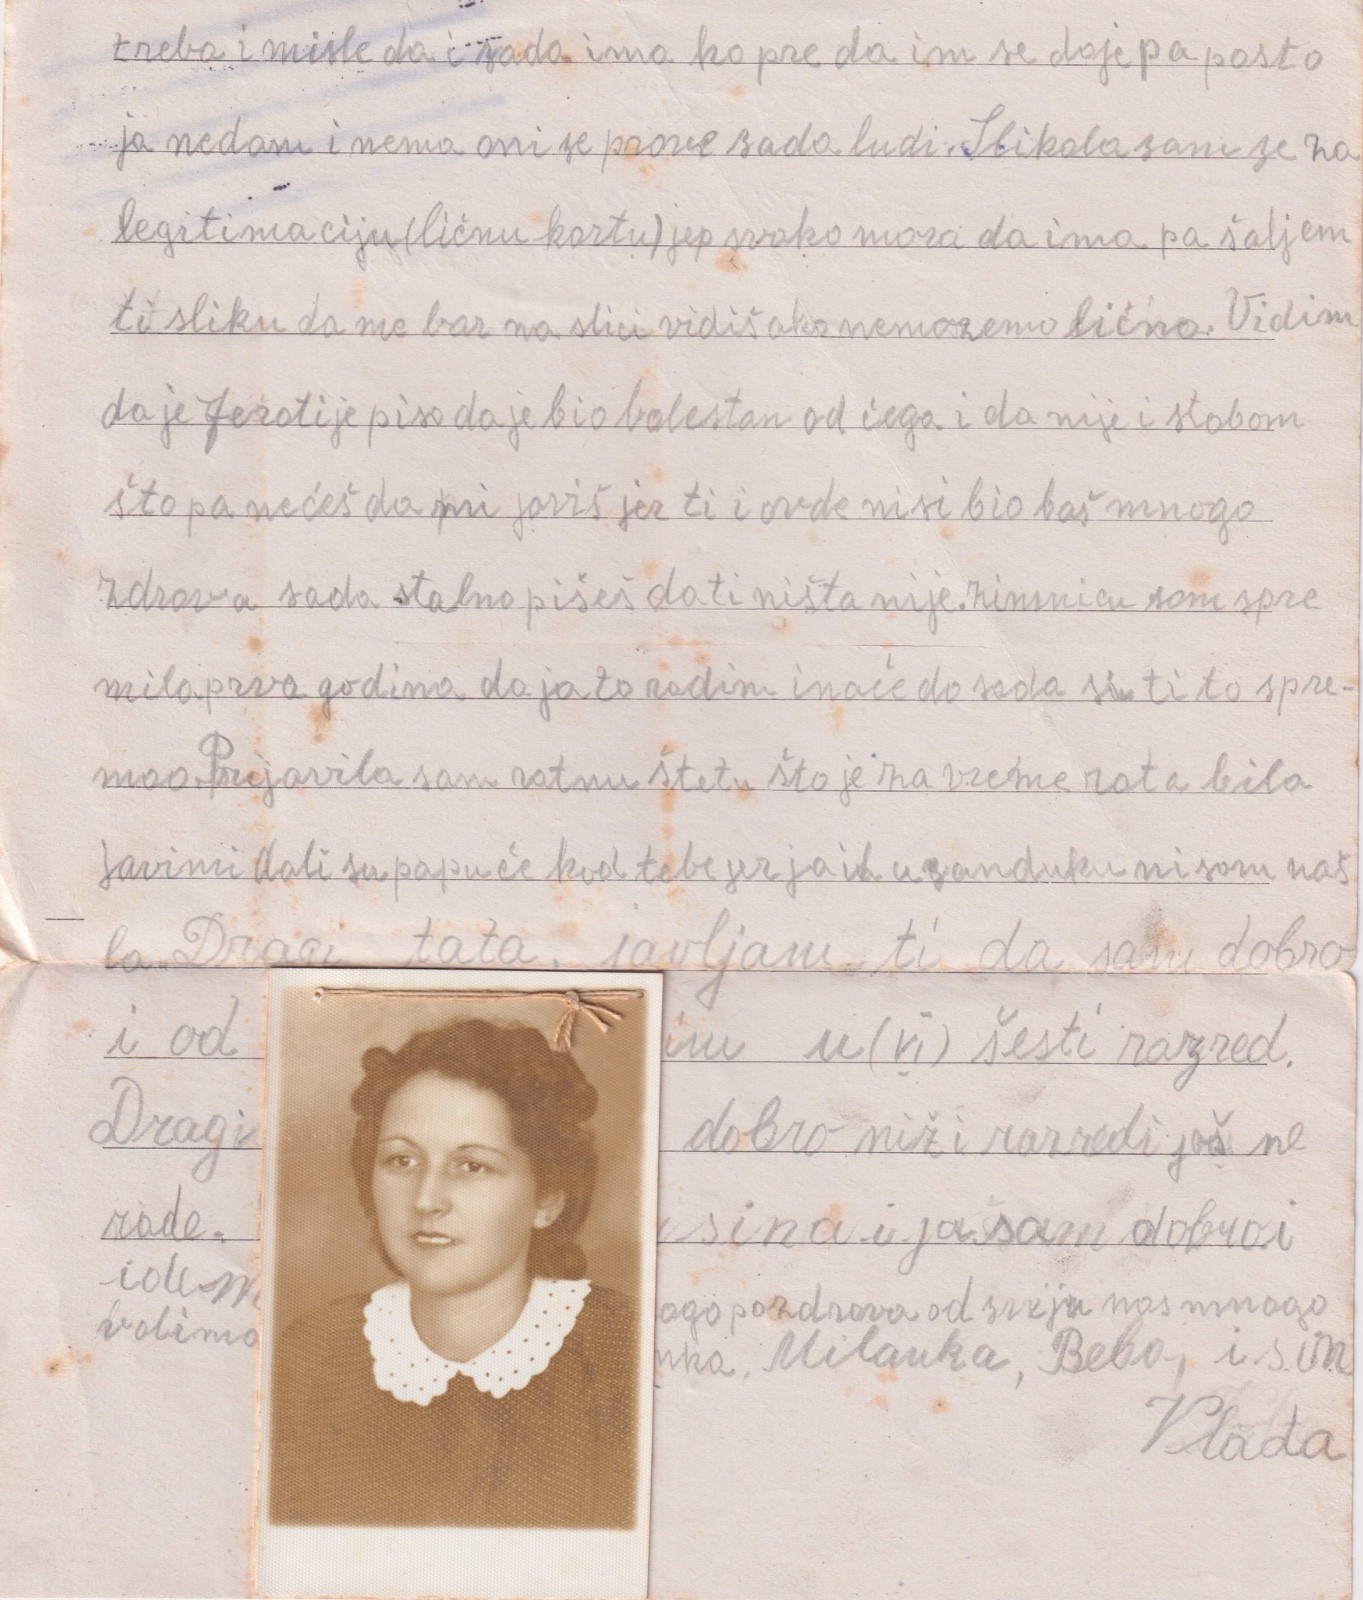 treba i misle da i sada ima ko pre da im se daje pa pošto
ja nedam i nema oni se prave sada ludi. Slikala sam se za
legitimaciju (ličnu kartu) jer svako mora da ima pa šaljem
ti sliku da me bar na slici vidiš ako nemozemo lično. Vidim
da je piso da je bio bolestan od čega i da nije i stobom
što pa nećeš da mi javiš jer ti i ovde nisi bio baš mnogo
zdrav a sada stalno pišeš da ti ništa nije. Zimnicu sam spre
mila prva godina da ja to radim inače do sada si ti to spre-
mao. Prijavila sam ratnu štetu što je za vreme rata bila
javi mi dali su papuče kod tebe jer ja ih u sanduku nisam naš
la. Dragi tata, javljam ti da sam dobro
i od u (VI) šesti razred.
Dragi dobro niži razredi još ne
rade. sina i ja sam dobro i
idem
pozdrava od sviju nas mnogo
Milanka, Beba, i sin
Vlada